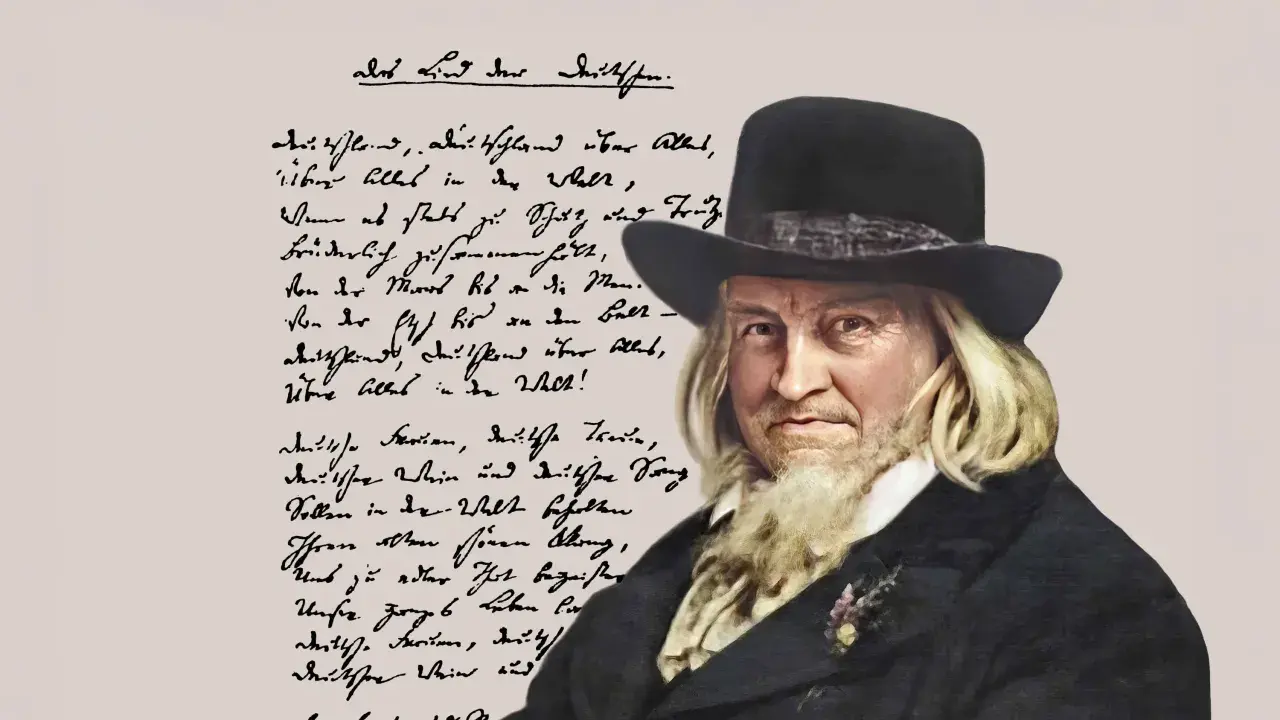 Das Lied der Deutschen.
Deutschland, Deutschland über Alles,
Über Alles in der Welt,
Wenn es stets zu Schutz und Trutz
Brüderlich zusammenhält,
Von der Maas bis an die Mem
Von der Etsch bis an den Belt –
Deutschland, Deutschland über Alles,
Über Alles in der Welt!
Deutsche Frauen, deutsche Treue,
Deutscher Wein und deutscher Sang
Sollen in der Welt behalten
Ihren alten schönen Klang,
Uns zu edler That begeister
Unser ganzes Leben
Deutsche Frauen, deutsch
Deutscher Wein und